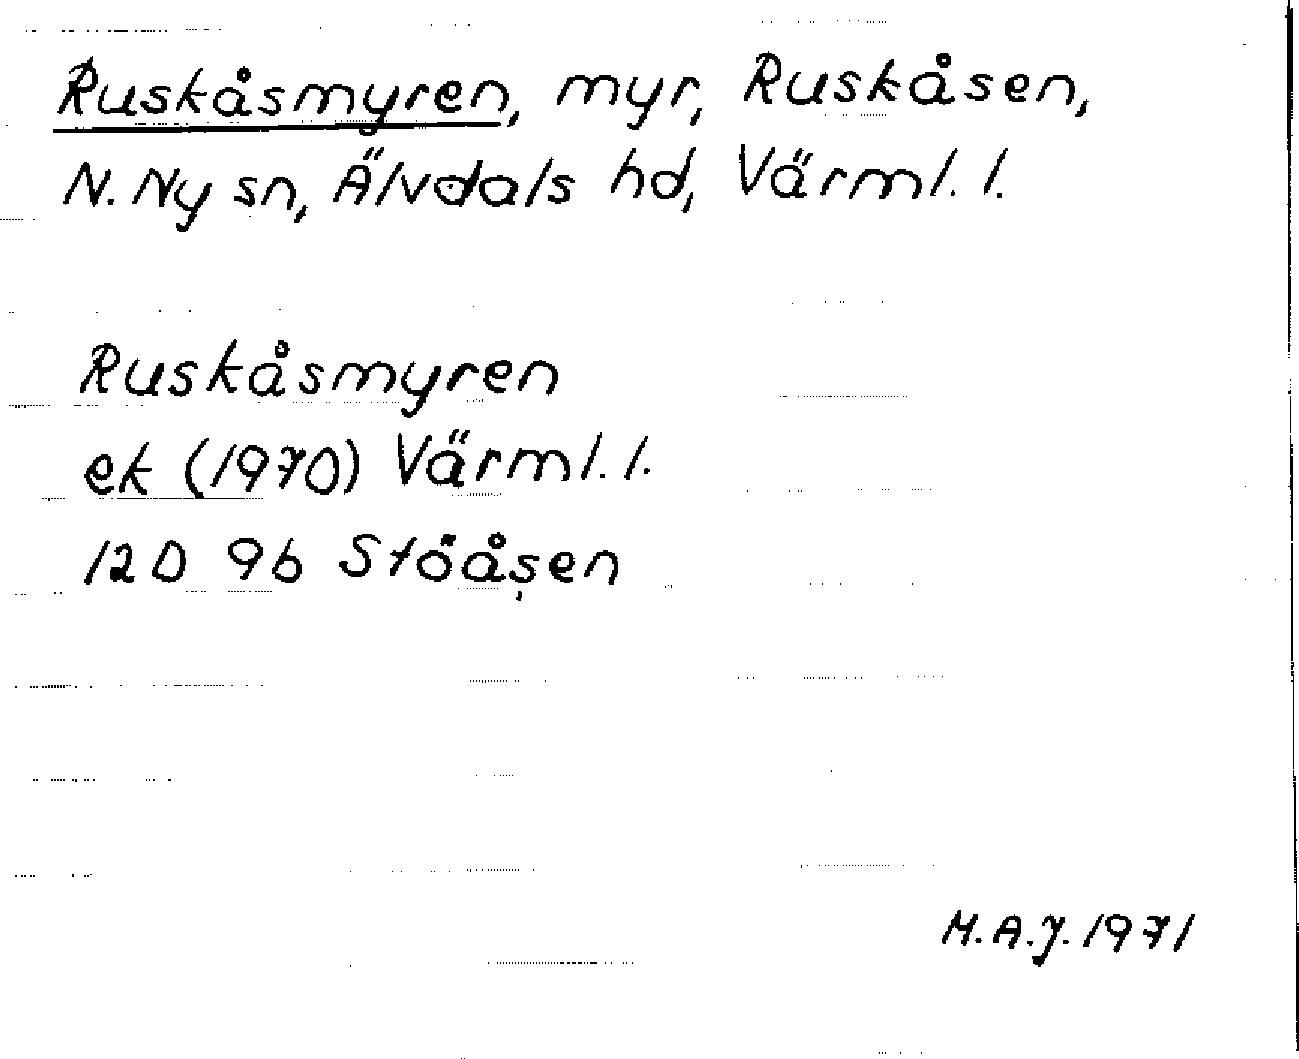 Ruskåsmyren, myr, Ruskåsen,
N. Ny sn, Älvdals hd, Värml. l.
Ruskåsmyren
ek (1970) Värml. l.
12D 9b Stöåsen
M.A.J. 1971